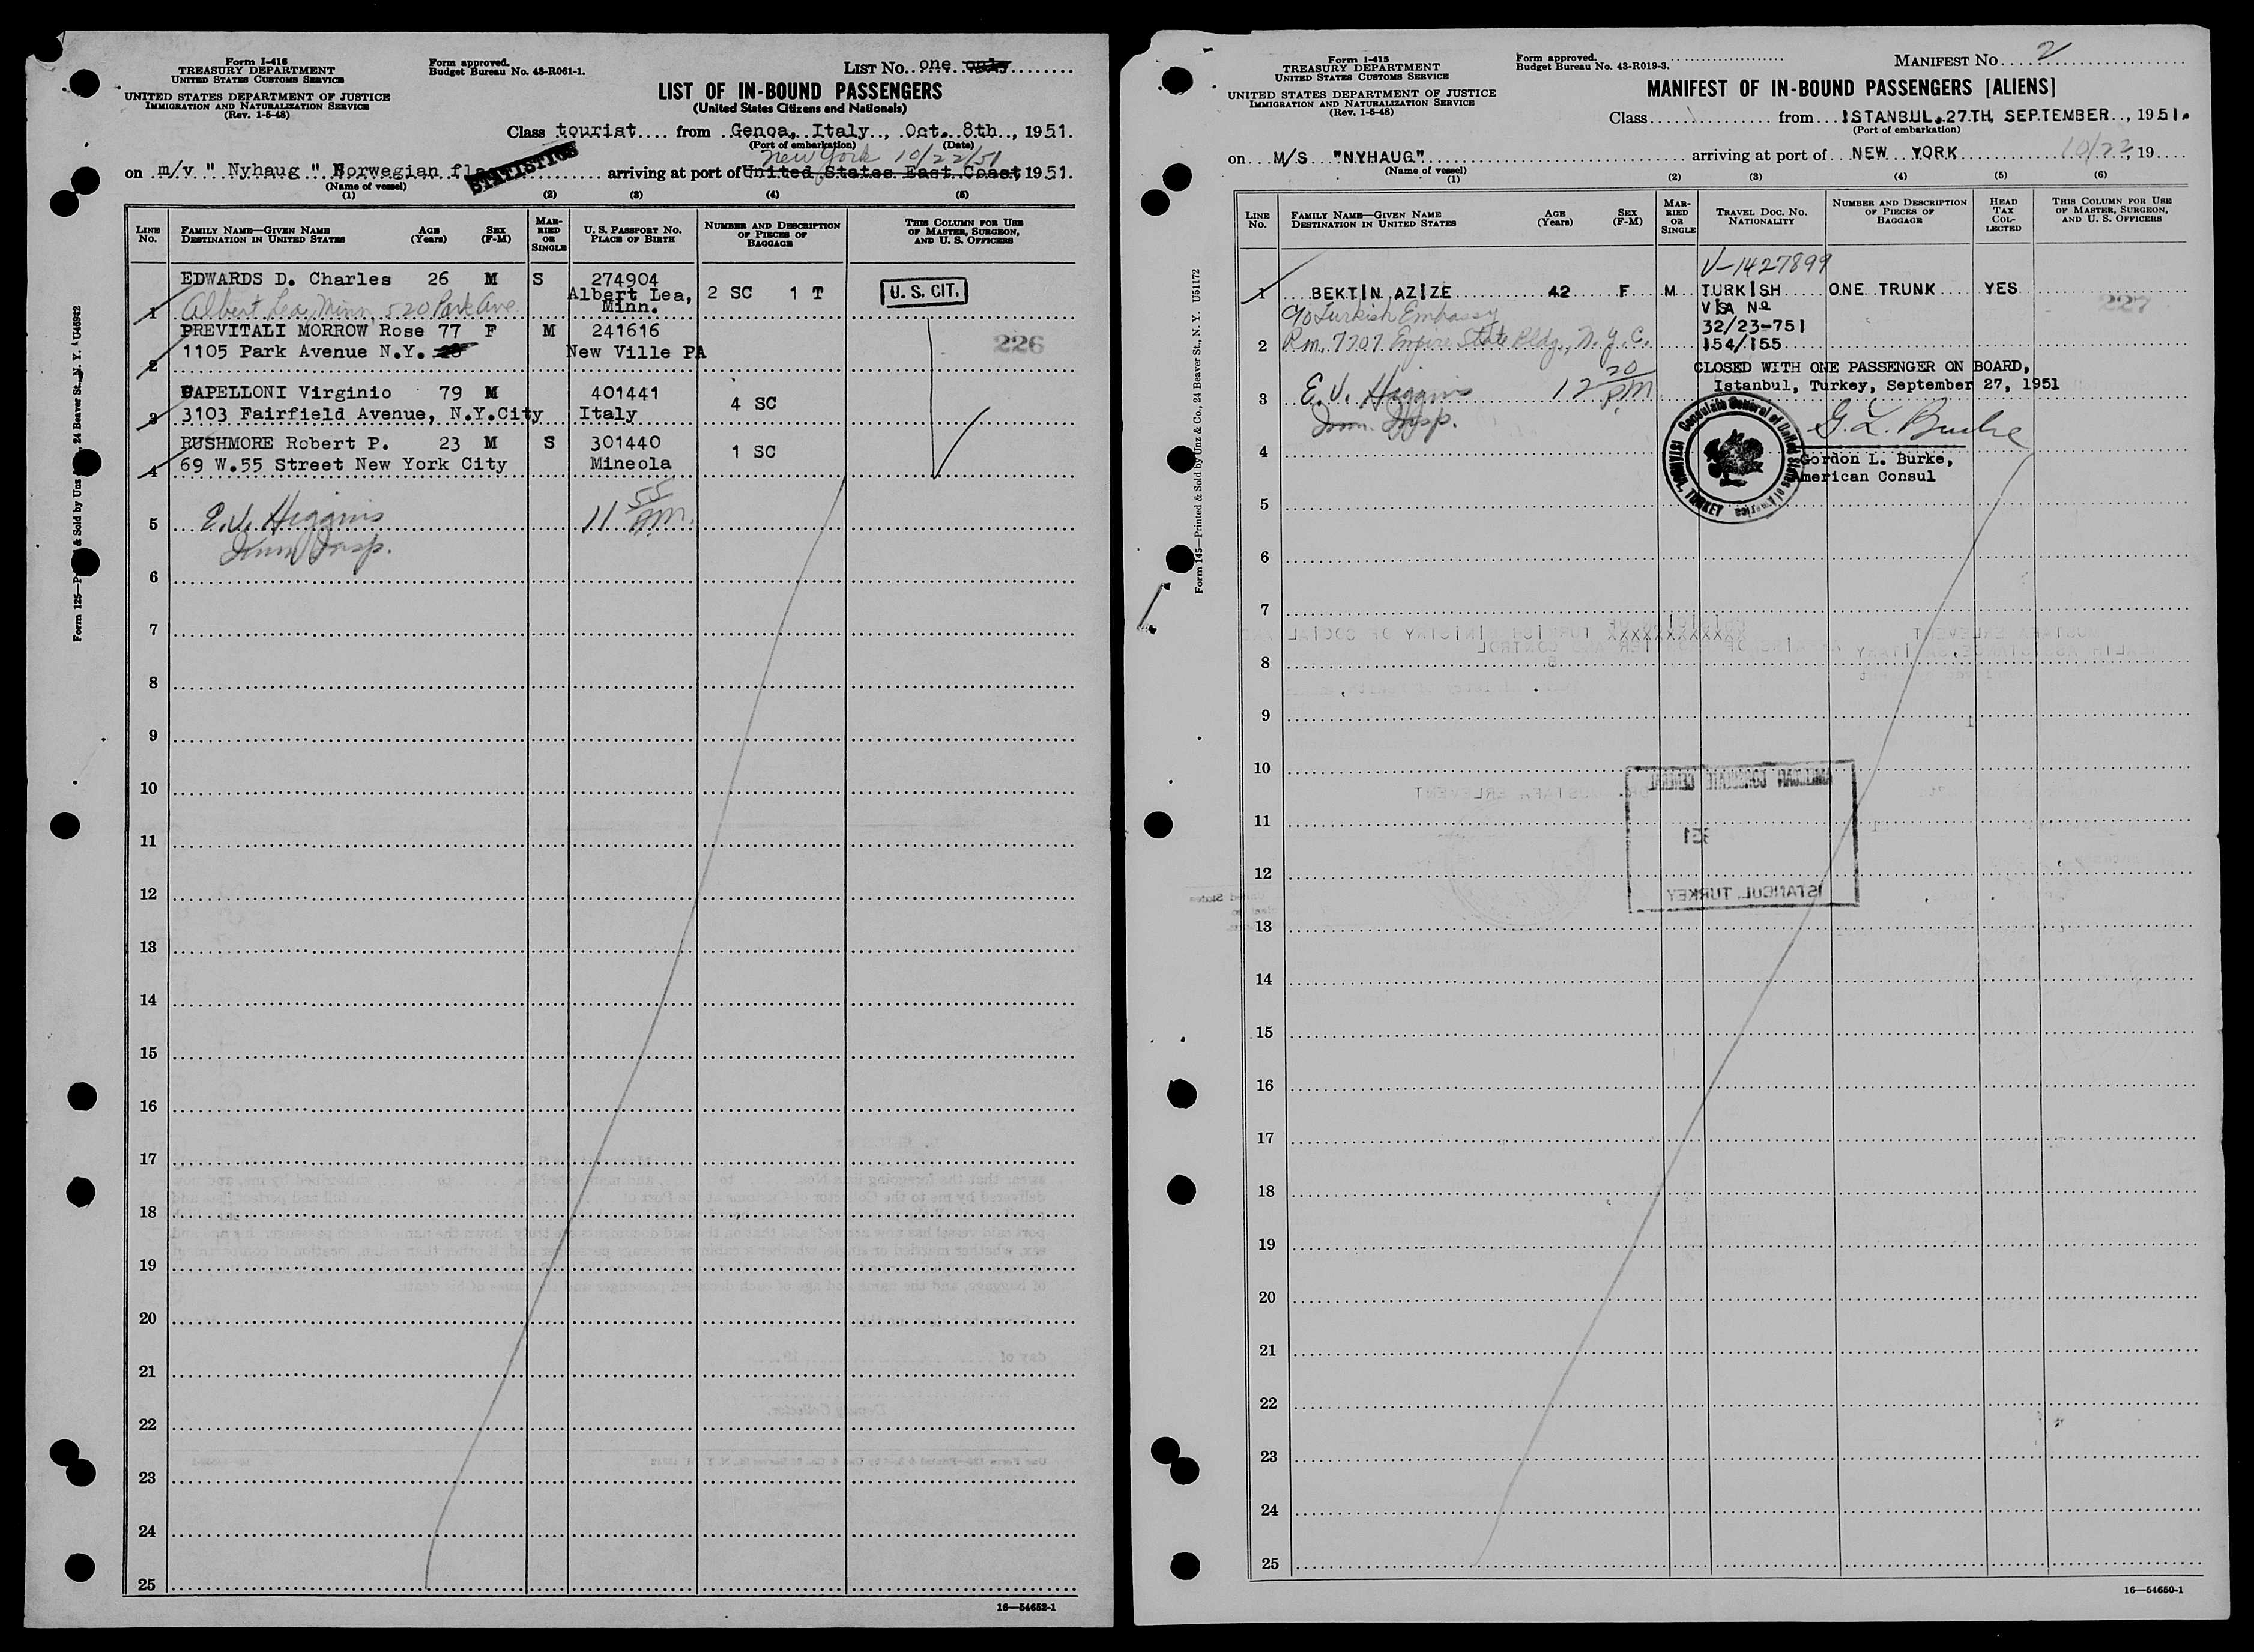 Form I-416
TREASURY DEPARTMENT
UNITED STATES CUSTOMS SERVICE
UNITED STATES DEPARTMENT OF JUSTICE
IMMIGRATION AND NATURALIZATION SERVICE
(Rev. 1-5-48)
Form approved.
Budget Bureau No. 43-R061-1.
LIST No. one only
LIST OF IN-BOUND PASSENGERS
(United States Citizens and Nationals)
Class tourist from Genoa, Italy, Oct. 8th, 1951.
(Port of embarkation) (Date)
New York 10/22/51
on m/v " Nyhaug " Norwegian fla STATISTICS arriving at port of United States East Coast 1951.
(Name of vessel)
(1) (2) (3) (4) (5)
LINE No.
FAMILY NAME—GIVEN NAME
DESTINATION IN UNITED STATES
AGE (Years)
SEX (F-M)
MARRIED OR SINGLE
U. S. PASSPORT NO.
PLACE OF BIRTH
NUMBER AND DESCRIPTION OF PIECES OF BAGGAGE
THIS COLUMN FOR USE OF MASTER, SURGEON, AND U. S. OFFICERS
EDWARDS D. Charles 26 M S 274904
Albert Lea, Minn. 2 SC 1 T U. S. CIT.
1 Albert Lea, Minn, 520 Park Ave
PREVITALI MORROW Rose 77 F M 241616
226
2 1105 Park Avenue N.Y. New Ville PA
PAPELLONI Virginio 79 M 401441
4 SC
3 3103 Fairfield Avenue, N.Y.City Italy
RUSHMORE Robert P. 23 M S 301440
1 SC
4 69 W.55 Street New York City Mineola
5 E.V. Higgins 11 55 AM.
Imm Insp.
6
7
8
9
10
11
12
13
14
15
16
17
18
19
20
21
22
23
24
25
16—54652-1
Form I-415
TREASURY DEPARTMENT
UNITED STATES CUSTOMS SERVICE
UNITED STATES DEPARTMENT OF JUSTICE
IMMIGRATION AND NATURALIZATION SERVICE
(Rev. 1-5-48)
Form approved.
Budget Bureau No. 43-R019-3.
MANIFEST No. 2
MANIFEST OF IN-BOUND PASSENGERS [ALIENS]
Class from ISTANBUL, 27TH SEPTEMBER, 1951.
(Port of embarkation)
on M/S "NYHAUG" arriving at port of NEW YORK 10/22, 19
(Name of vessel)
(1) (2) (3) (4) (5) (6)
LINE No.
FAMILY NAME—GIVEN NAME
DESTINATION IN UNITED STATES
AGE (Years)
SEX (F-M)
MARRIED OR SINGLE
TRAVEL DOC. NO.
NATIONALITY
NUMBER AND DESCRIPTION OF PIECES OF BAGGAGE
HEAD TAX COLLECTED
THIS COLUMN FOR USE OF MASTER, SURGEON, AND U. S. OFFICERS
V-1427899
1 BEKTIN AZIZE 42 F M TURKISH ONE TRUNK YES
227
c/o Turkish Embassy VISA No
32/23-751
2 Rm. 7707 Empire State Bldg., N.Y.C. 154/155
CLOSED WITH ONE PASSENGER ON BOARD,
Istanbul, Turkey, September 27, 1951
3 E.V. Higgins 12 20 P.M
Imm. Insp.
G. L. Burke
4 Gordon L. Burke,
American Consul
Consulate General of United States of America
ISTANBUL, TURKEY
5
6
7
8
9
10
11
12
13
14
15
16
17
18
19
20
21
22
23
24
25
16—54650-1
Form 145—Printed & Sold by Unz & Co., 24 Beaver St., N. Y. U51172